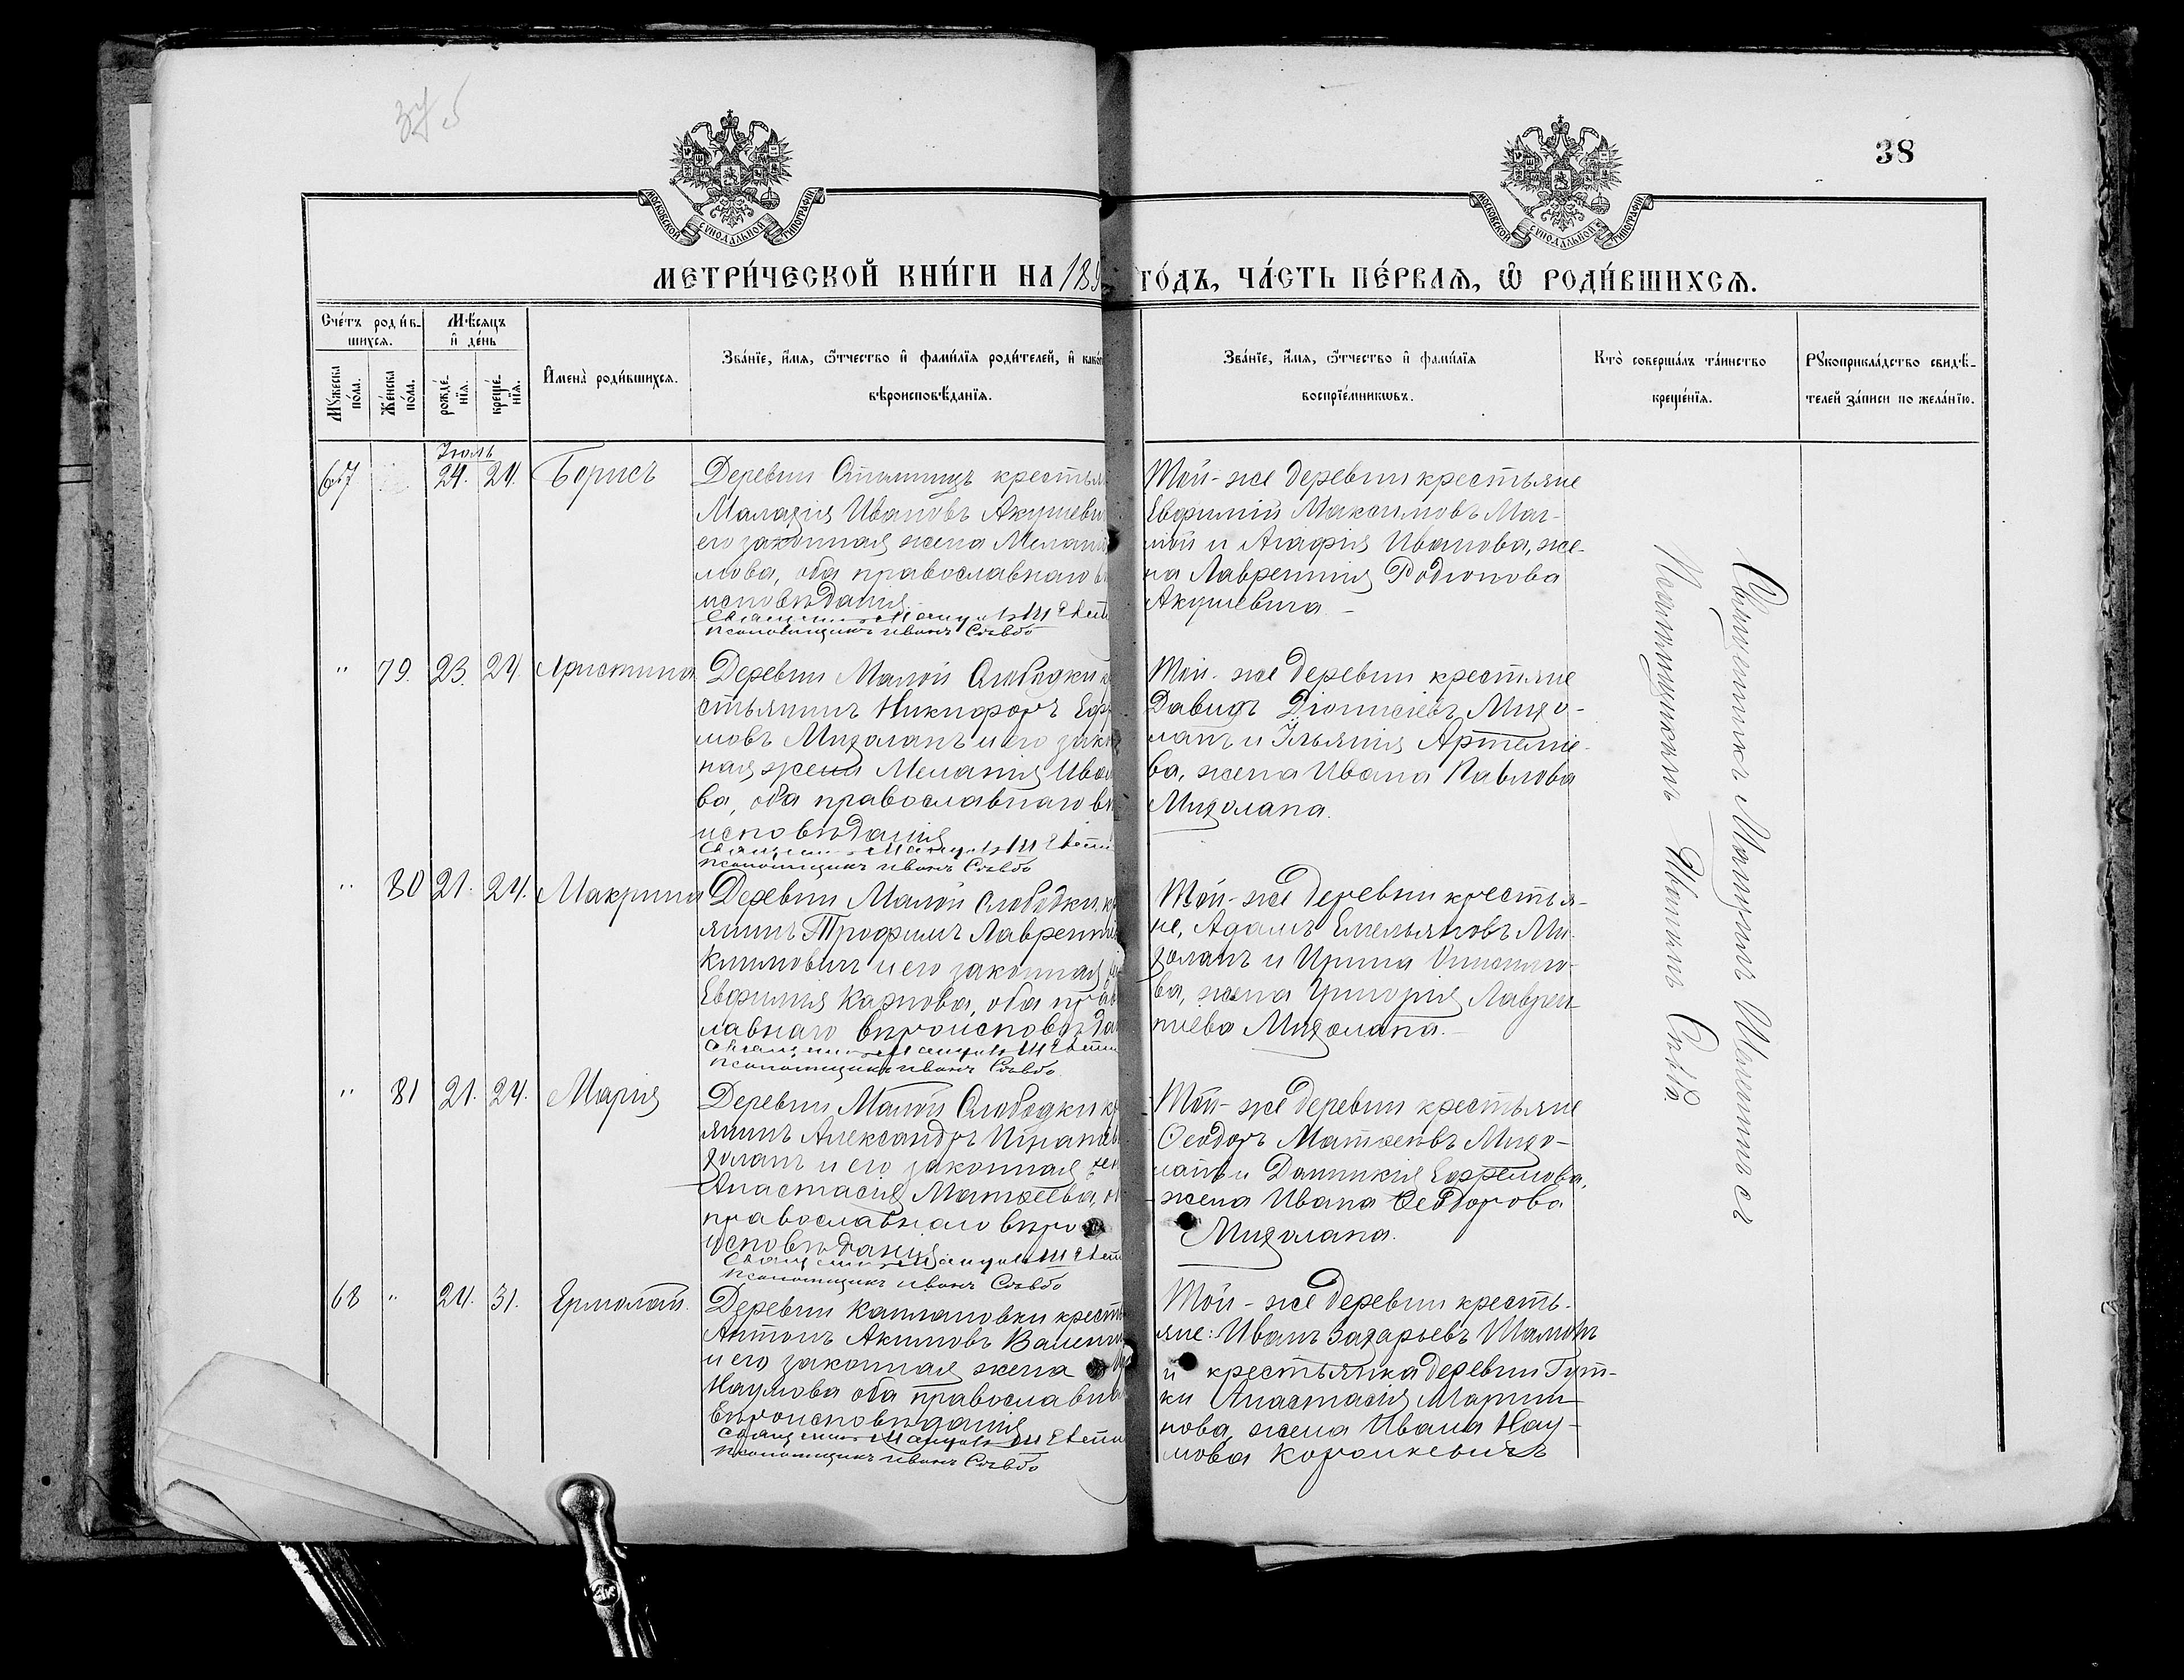 38
МОСКОВСКОЙ СѴНОДАЛЬНОЙ ТИПОГРАФІИ
МОСКОВСКОЙ СѴНОДАЛЬНОЙ ТИПОГРАФІИ
МЕТРИ́ЧЕСКОЙ КНИ́ГИ НА 189 ГО́ДЪ, ЧА́СТЬ ПЕ́РВАЯ, Ѡ РОДИ́ВШИХСЯ.
Сче́тъ роди́в-
шихся.
Мѣ́сяцъ
и де́нь
Му́жеска
по́ла.
Же́нска
по́ла.
рожде́-
нїя.
креще́-
нїя.
Имена̀ роди́вшихся.
Зва́нїе, и́мя, ѻ́тчество и фами́лїя роди́телей, и како́
вѣроисповѣ́данїя.
Зва́нїе, и́мя, ѻ́тчество и фами́лїя
воспрїе́мникѡвъ.
Кто̀ соверша́лъ та́инство
креще́нїя.
Рꙋкоприкла́дство свидѣ́-
телей за́писи по жела́нїю.
Іюль
67 24. 24. Борисъ
Деревни крестья
Малахія Ивановъ Акушеви
его законная жена Мелані
мова, оба православнаго в
исповѣданія.
Псаломщикъ Иванъ Сѣвбо
Той-же деревни крестьяне
Евфимій Максимовъ Мат-
и Агафія Иванова, же-
на Лаврентія Родіонова
Акушевича.
" 79. 23. 24. Христина
Деревни Малой Слободки к
стьянинъ Никифоръ Ефр
мовъ Мизоланъ и его закон
ная жена Меланія Ивано
ва, оба православнаго вѣ
исповѣданія
Псаломщикъ Иванъ Сѣвбо
Той-же деревни крестьяне
Давидъ Діонисіевъ Мизо-
ланъ и Ульянія Артеміе-
ва, жена Ивана Павлова
Мизолана.
" 80 21. 24. Макрина
Деревни Малой Слободки, к
янинъ Трофимъ Лаврентіе
Климовичъ и его законная
Евфимія Карпова, оба прав
лавнаго вѣроисповѣда
Псаломщикъ Иванъ Сѣвбо
Той-же деревни крестья-
не, Адамъ Емельяновъ Ми-
золанъ и Ирина
ва, жена Григорія Лаврен-
тіева Мизолана.
" 81 21. 24. Марія
Деревни Малой Слободки к
янинъ Александръ
золанъ и его законная жен
Анастасія Матѳеева, о
православнаго вѣро
исповѣданія
Псаломщикъ Иванъ Сѣвбо
Той-же деревни крестьяне
Ѳеодоръ Матѳеевъ Мизо-
ланъ и Домникія Ефремова,
жена Ивана Ѳеодорова
Мизолана.
68 " 24. 31. Ермолай.
Деревни Каплановки кресть
Антонъ Акимовъ
и его законная жена
Наумова оба православна
вѣроисповѣданія
Псаломщикъ Иванъ Сѣвбо
Той-же деревни кресть-
яне: Иванъ Захарьевъ
и крестьянка деревни Гут-
ки Анастасія Марти-
нова, жена Ивана Нау-
мова
Священникъ
Псаломщикомъ Иваномъ Сѣвбо